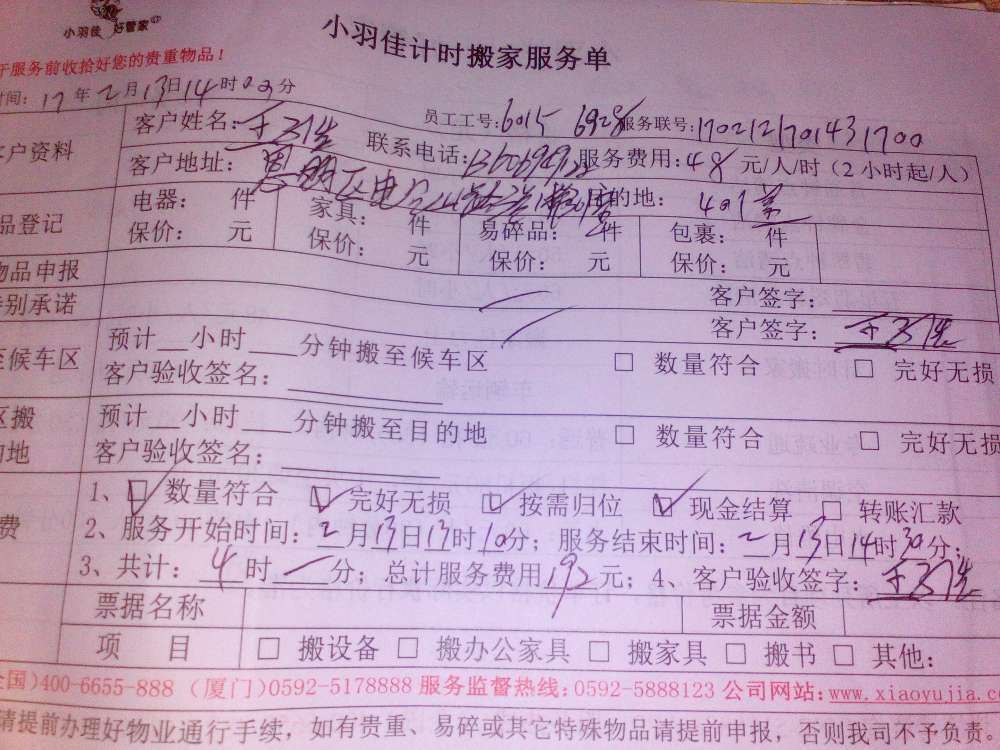 小羽佳 好管家
小羽佳计时搬家服务单
于服务前收拾好您的贵重物品！
时间：17年2月13日14时00分
员工工号：6015 6928 服务联号：1702121701431700
客户资料 客户姓名：王先生 联系电话： 服务费用：48元/人/时（2小时起/人）
客户地址：思明区电 目的地：
品登记 电器： 件 家具： 件 易碎品： 件 包裹： 件
保价： 元 保价： 元 保价： 元 保价： 元
物品申报 客户签字：
特别承诺 客户签字：王先生
至候车区 预计 小时 分钟搬至候车区 □ 数量符合 □ 完好无损
客户验收签名：
区搬 预计 小时 分钟搬至目的地 □ 数量符合 □ 完好无损
的地 客户验收签名：
1、☑ 数量符合 ☑ 完好无损 ☑ 按需归位 ☑ 现金结算 □ 转账汇款
费 2、服务开始时间：2月13日13时10分；服务结束时间：2月13日14时30分；
3、共计：4时一分；总计服务费用192元；4、客户验收签字：王先生
票据名称 票据金额
项 目 □ 搬设备 □ 搬办公家具 □ 搬家具 □ 搬书 □ 其他：
全国)400-6655-888 (厦门)0592-5178888 服务监督热线：0592-5888123 公司网站：www.xiaoyujia.c
请提前办理好物业通行手续，如有贵重、易碎或其它特殊物品请提前申报，否则我司不予负责。